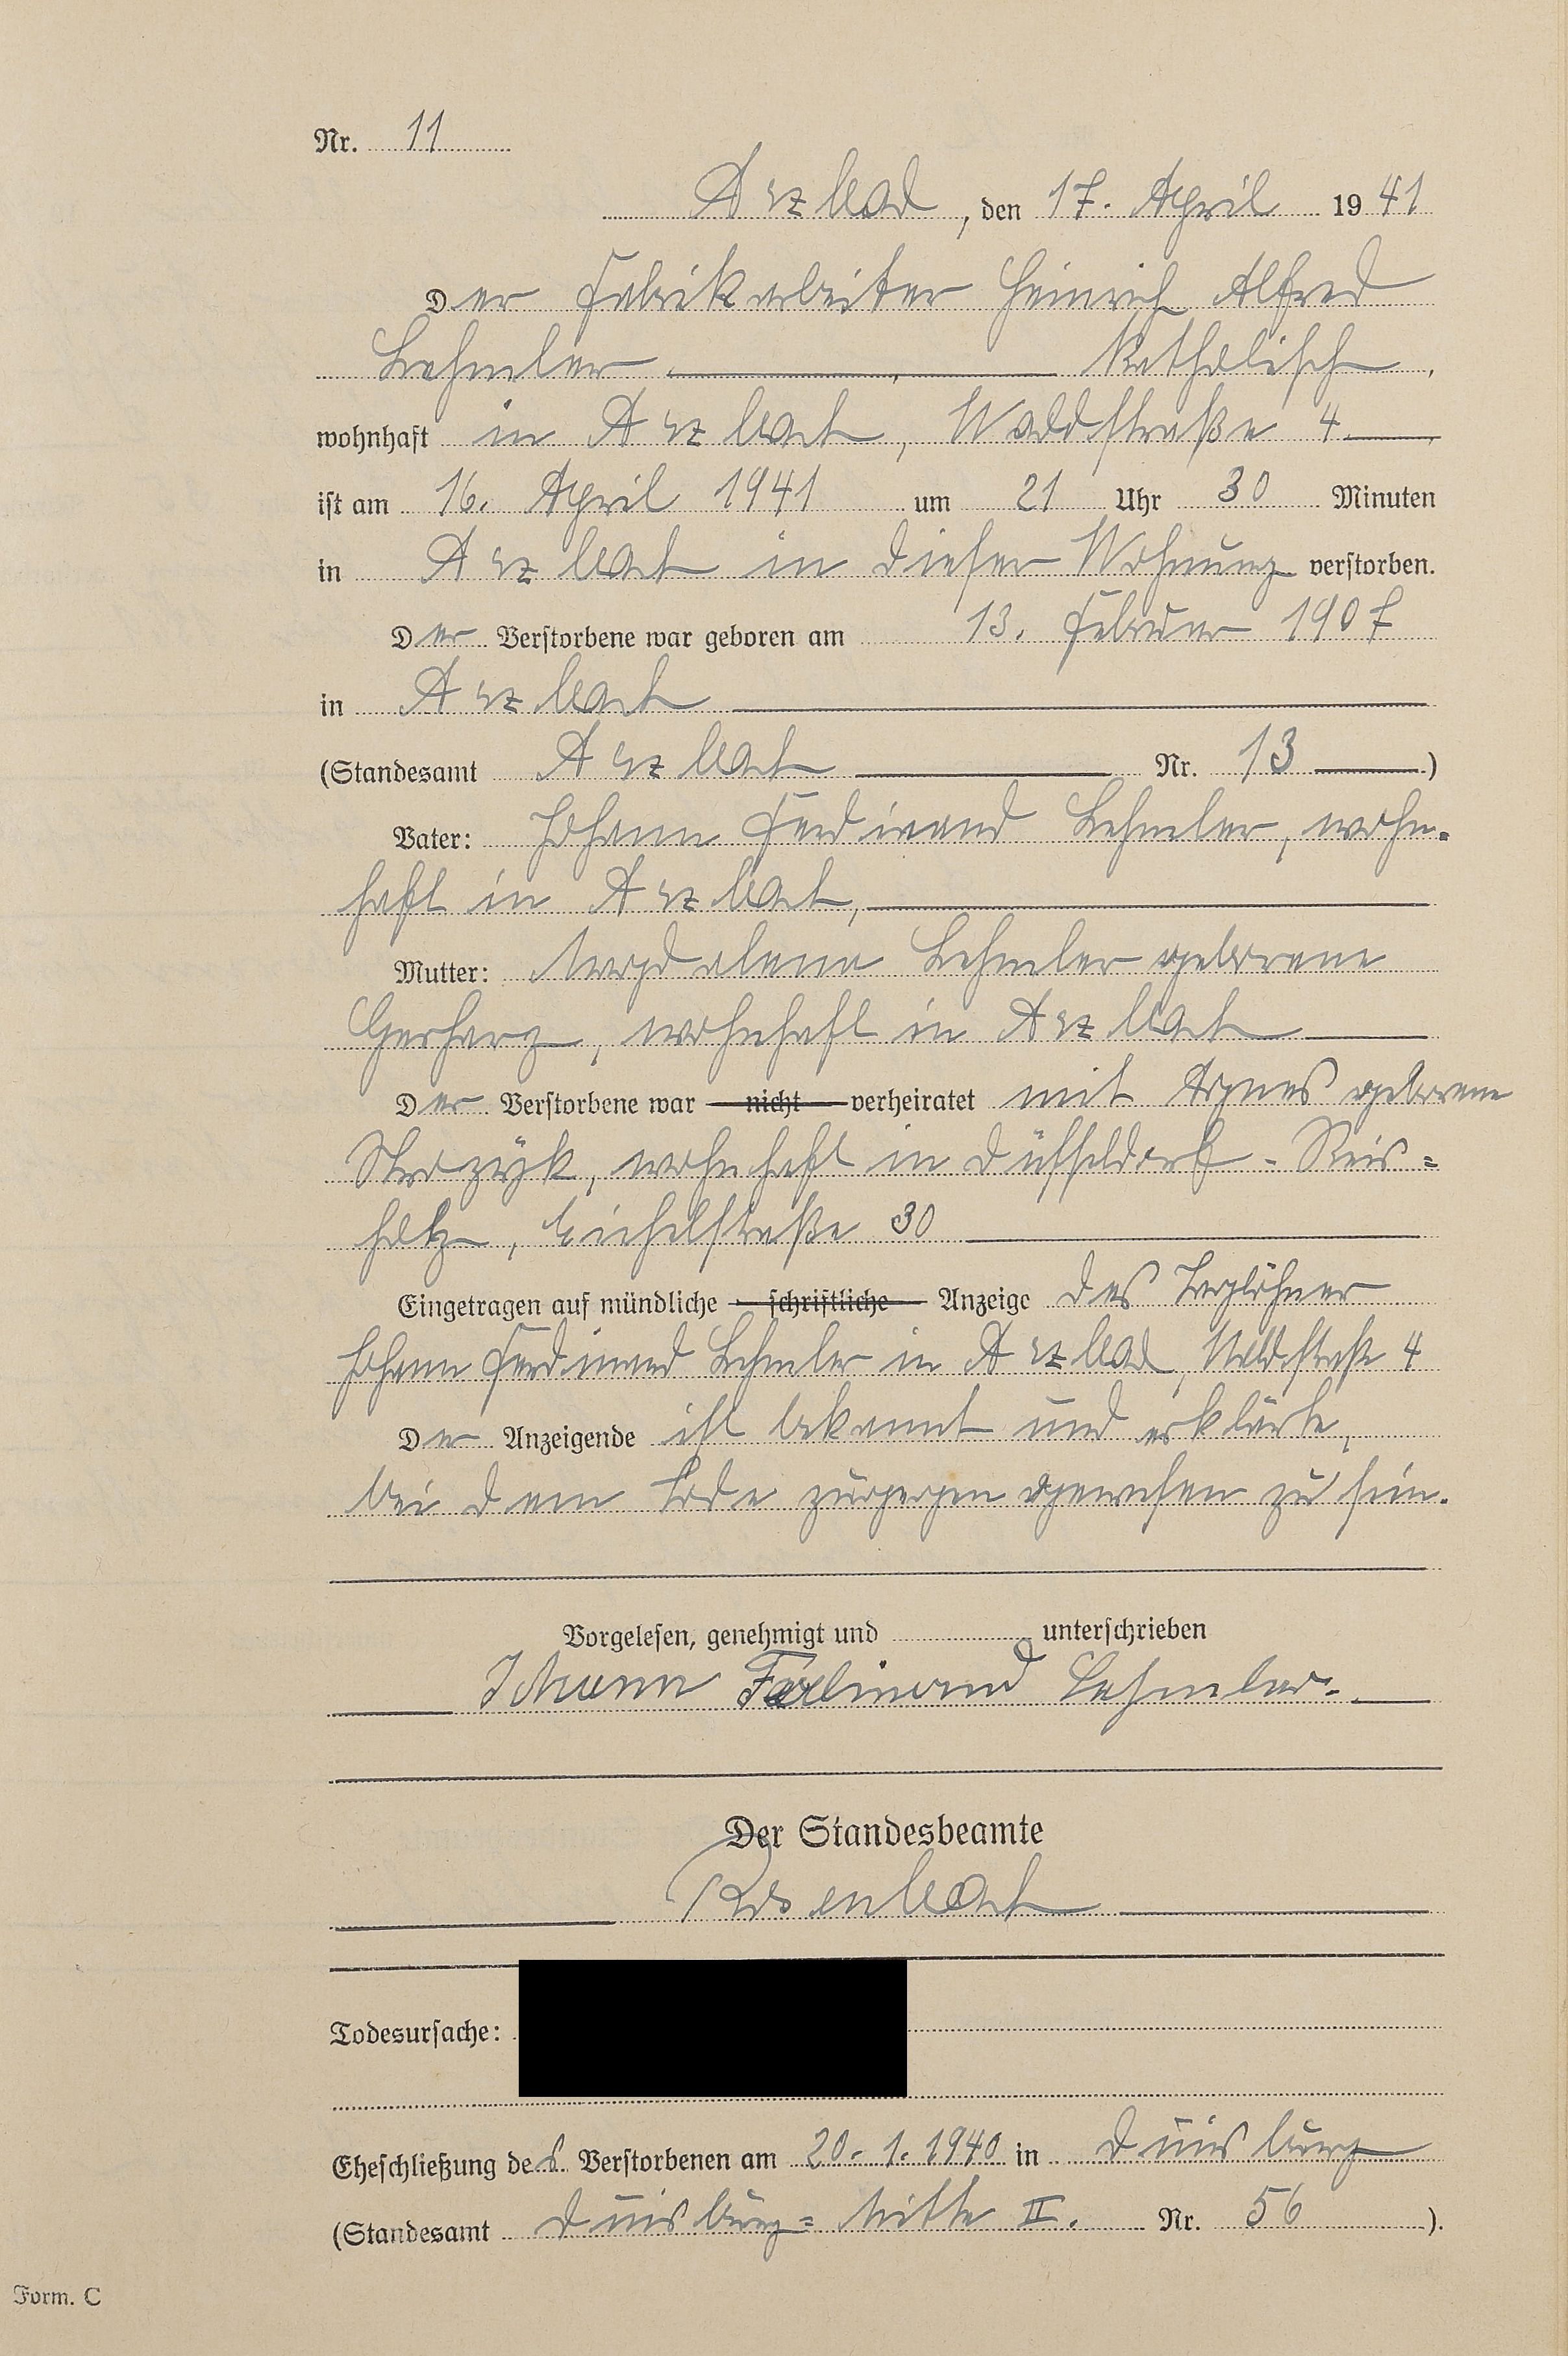 Nr. 11
Arzbach, den 17. April 1941
Der Fabrikarbeiter Heinrich Alfred
Lehmler katholisch,
wohnhaft in Arzbach, Waldstraße 4
ist am 16. April 1941 um 21 Uhr 30 Minuten
in Arzbach in dieser Wohnung verstorben.
Der Verstorbene war geboren am 13. Februar 1907
in Arzbach
(Standesamt Arzbach Nr. 13)
Vater: Johann Ferdinand Lehmler, wohn-
haft in Arzbach,
Mutter: Magdalena Lehmler geborene
Gerharz, wohnhaft in Arzbach
Der Verstorbene war nicht verheiratet mit Agnes geborene
wohnhaft in Düsseldorf-Reis=
holz, Eichelstraße 30
Eingetragen auf mündliche schriftliche Anzeige des Taglöhner
Johann Ferdinand Lehmler in Arzbach, Waldstraße 4
Der Anzeigende ist bekannt und erklärte,
bei dem Tode zugegen gewesen zu sein.
Vorgelesen, genehmigt und unterschrieben
Johann Ferdinand Lehmler.
Der Standesbeamte
Rosenbach
Todesursache:
Eheschließung des Verstorbenen am 20.1.1940 in Duisburg
(Standesamt Duisburg=Mitte II. Nr. 56).
Form. C